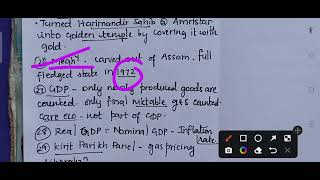 • Turned Harimandir Sahib @ Amritstar
into Golden temple by covering it with
gold.
Megh^y - carved out of Assam. full
fledged state in 1972
GDP - only newly produced goods are
counted. only final mktable g&s counted
care eco - not part of GDP.
(28) Real GDP = Nominal GDP - Inflation
rate.
(29) Kirit Parikh Panel - gas pricing